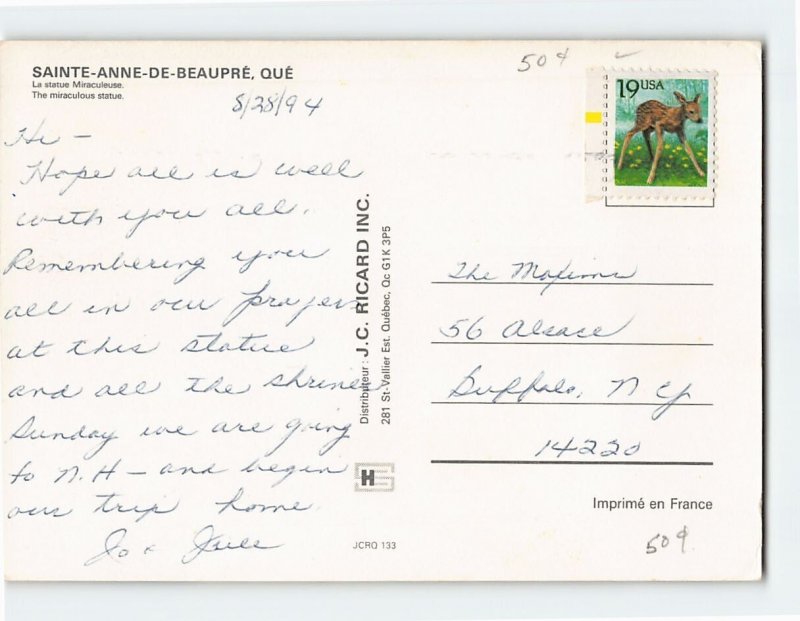 SAINTE-ANNE-DE-BEAUPRÉ, QUÉ
La statue Miraculeuse.
The miraculous statue.
8/28/94
Hi -
Hope all is well
with you all.
Remembering you
all in our prayers
at this statue
and all the shrines
Sunday we are going
to N.H - and begin
our trip home.
Jo &
Distributeur: J.C. RICARD INC.
281 St-Vallier Est. Québec, Qc G1K 3P5
H
JCRQ 133
50¢
19USA
The
56 Alsace
Buffalo, N Y
14220
Imprimé en France
50¢